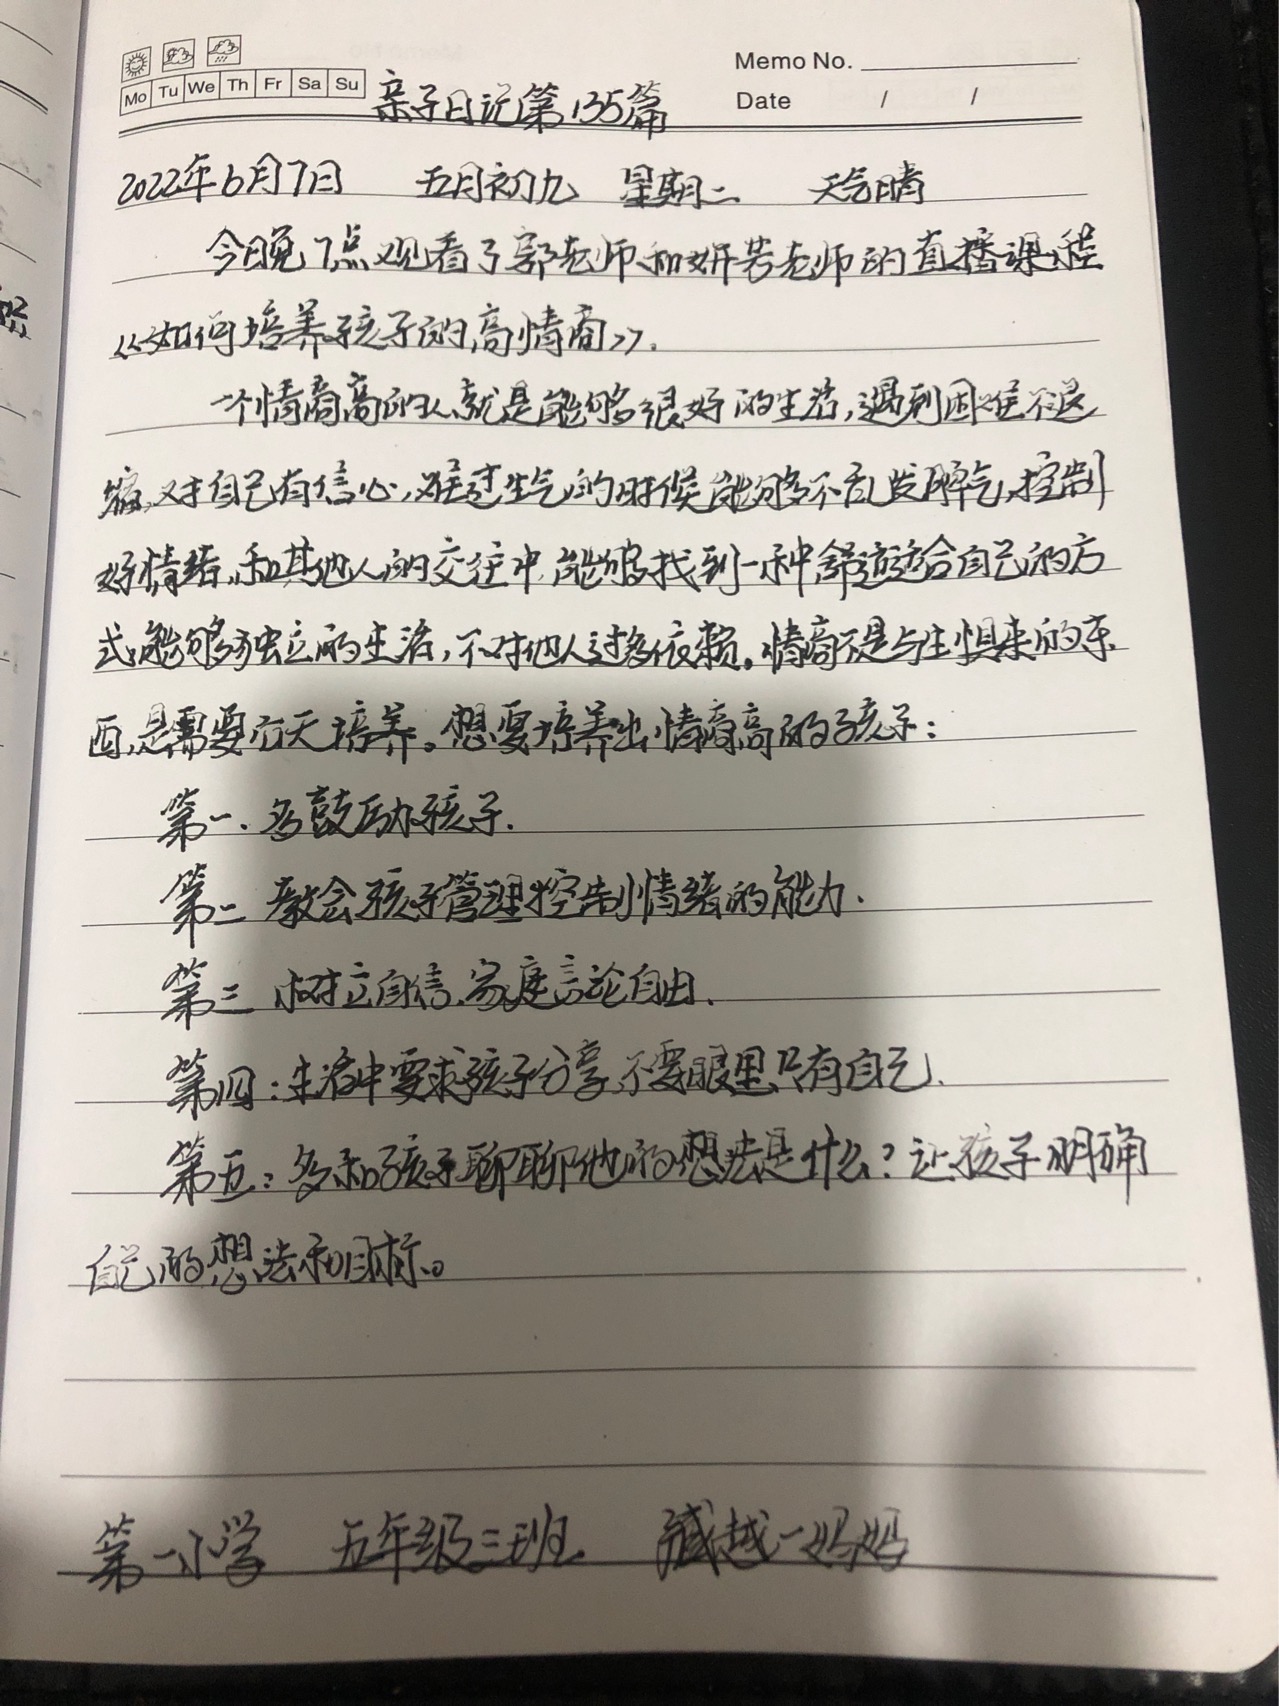 Memo No.
Mo Tu We Th Fr Sa Su
Date / /
亲子日记第135篇
2022年6月7日 五月初九 星期二 天气晴
今晚7点观看了郭老师和妍芳老师的直播课程
《如何培养孩子的高情商》.
一个情商高的人就是能够很好的生活,遇到困难不退
缩,对自己有信心,难过生气的时候能够不乱发脾气,控制
好情绪,和其他人的交往中,能够找到一种舒适适合自己的方
式,能够独立的生活,不对他人过多依赖。情商不是与生惧来的东
西,是需要后天培养。想要培养出情商高的孩子:
第一.多鼓励孩子.
第二 教会孩子管理控制情绪的能力.
第三 树立自信.家庭言论自由.
第四:生活中要求孩子分享,不要眼里只有自己.
第五:多和孩子聊聊他的想法是什么?让孩子明确
自己的想法和目标。
第一小学 五年级三班 臧越一妈妈